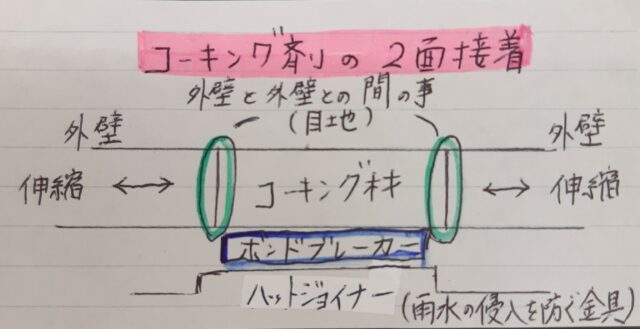 コーキング剤の2面接着
外壁と外壁との間の事
(目土地)
外壁
外壁
伸縮
コーキング材
伸縮
ボンドブレーカー
ハットジョイナー
(雨水の侵入を防ぐ金具)